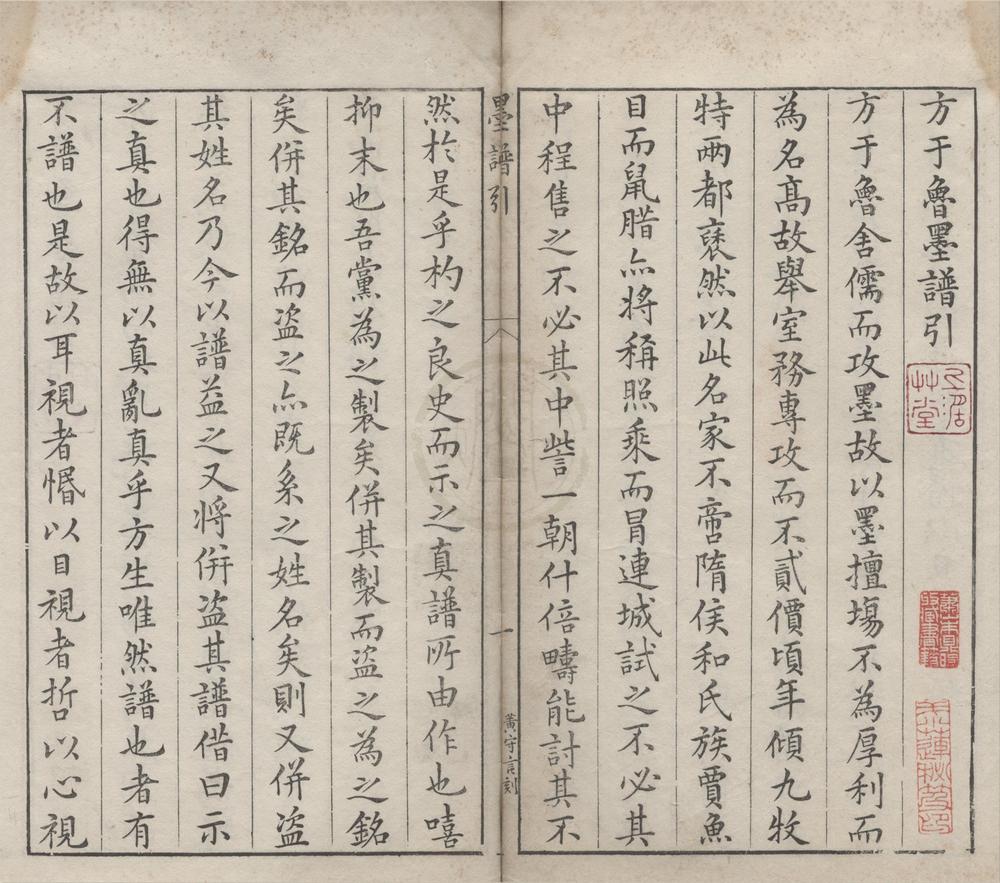 方于魯墨譜引
方于魯舍儒而攻墨故以墨擅塲不為厚利而
為名高故舉室務專攻而不貳價頃年傾九牧
特兩都褎然以此名家不啻隋侯和氏族賈魚
目而鼠腊亦將稱照乘而冒連城試之不必其
中程售之不必其中訾一朝什倍疇能討其不
墨譜引
一
黃守言刻
然於是乎杓之良史而示之真譜所由作也嘻
抑末也吾黨為之製矣併其製而盜之為之銘
矣併其銘而盜之亦既系之姓名矣則又併盜
其姓名乃今以譜益之又將併盜其譜借曰示
之真也得無以真亂真乎方生唯然譜也者有
不譜也是故以耳視者惛以目視者哲以心視